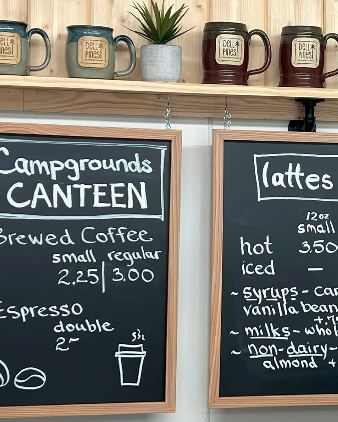 DELL
PINES
DELL
PINES
DELL
PINES
DELL
PINES
Campgrounds
CANTEEN
Brewed Coffee
small regular
2.25 | 3.00
Espresso
double
2-
lattes
12oz
small
hot 3.50
iced —
~ syrups - car
vanilla bean
~ milks - who
~ non-dairy -
almond +